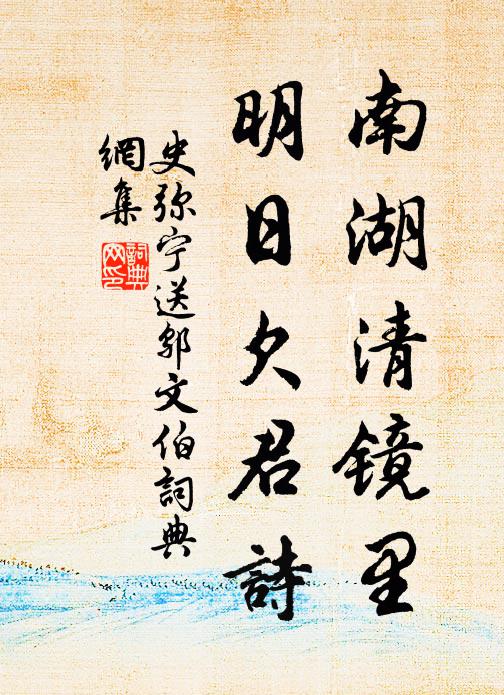 南湖清镜里
明日欠君詩
史弥宁送郭文伯詞典
網集
詞典
网印